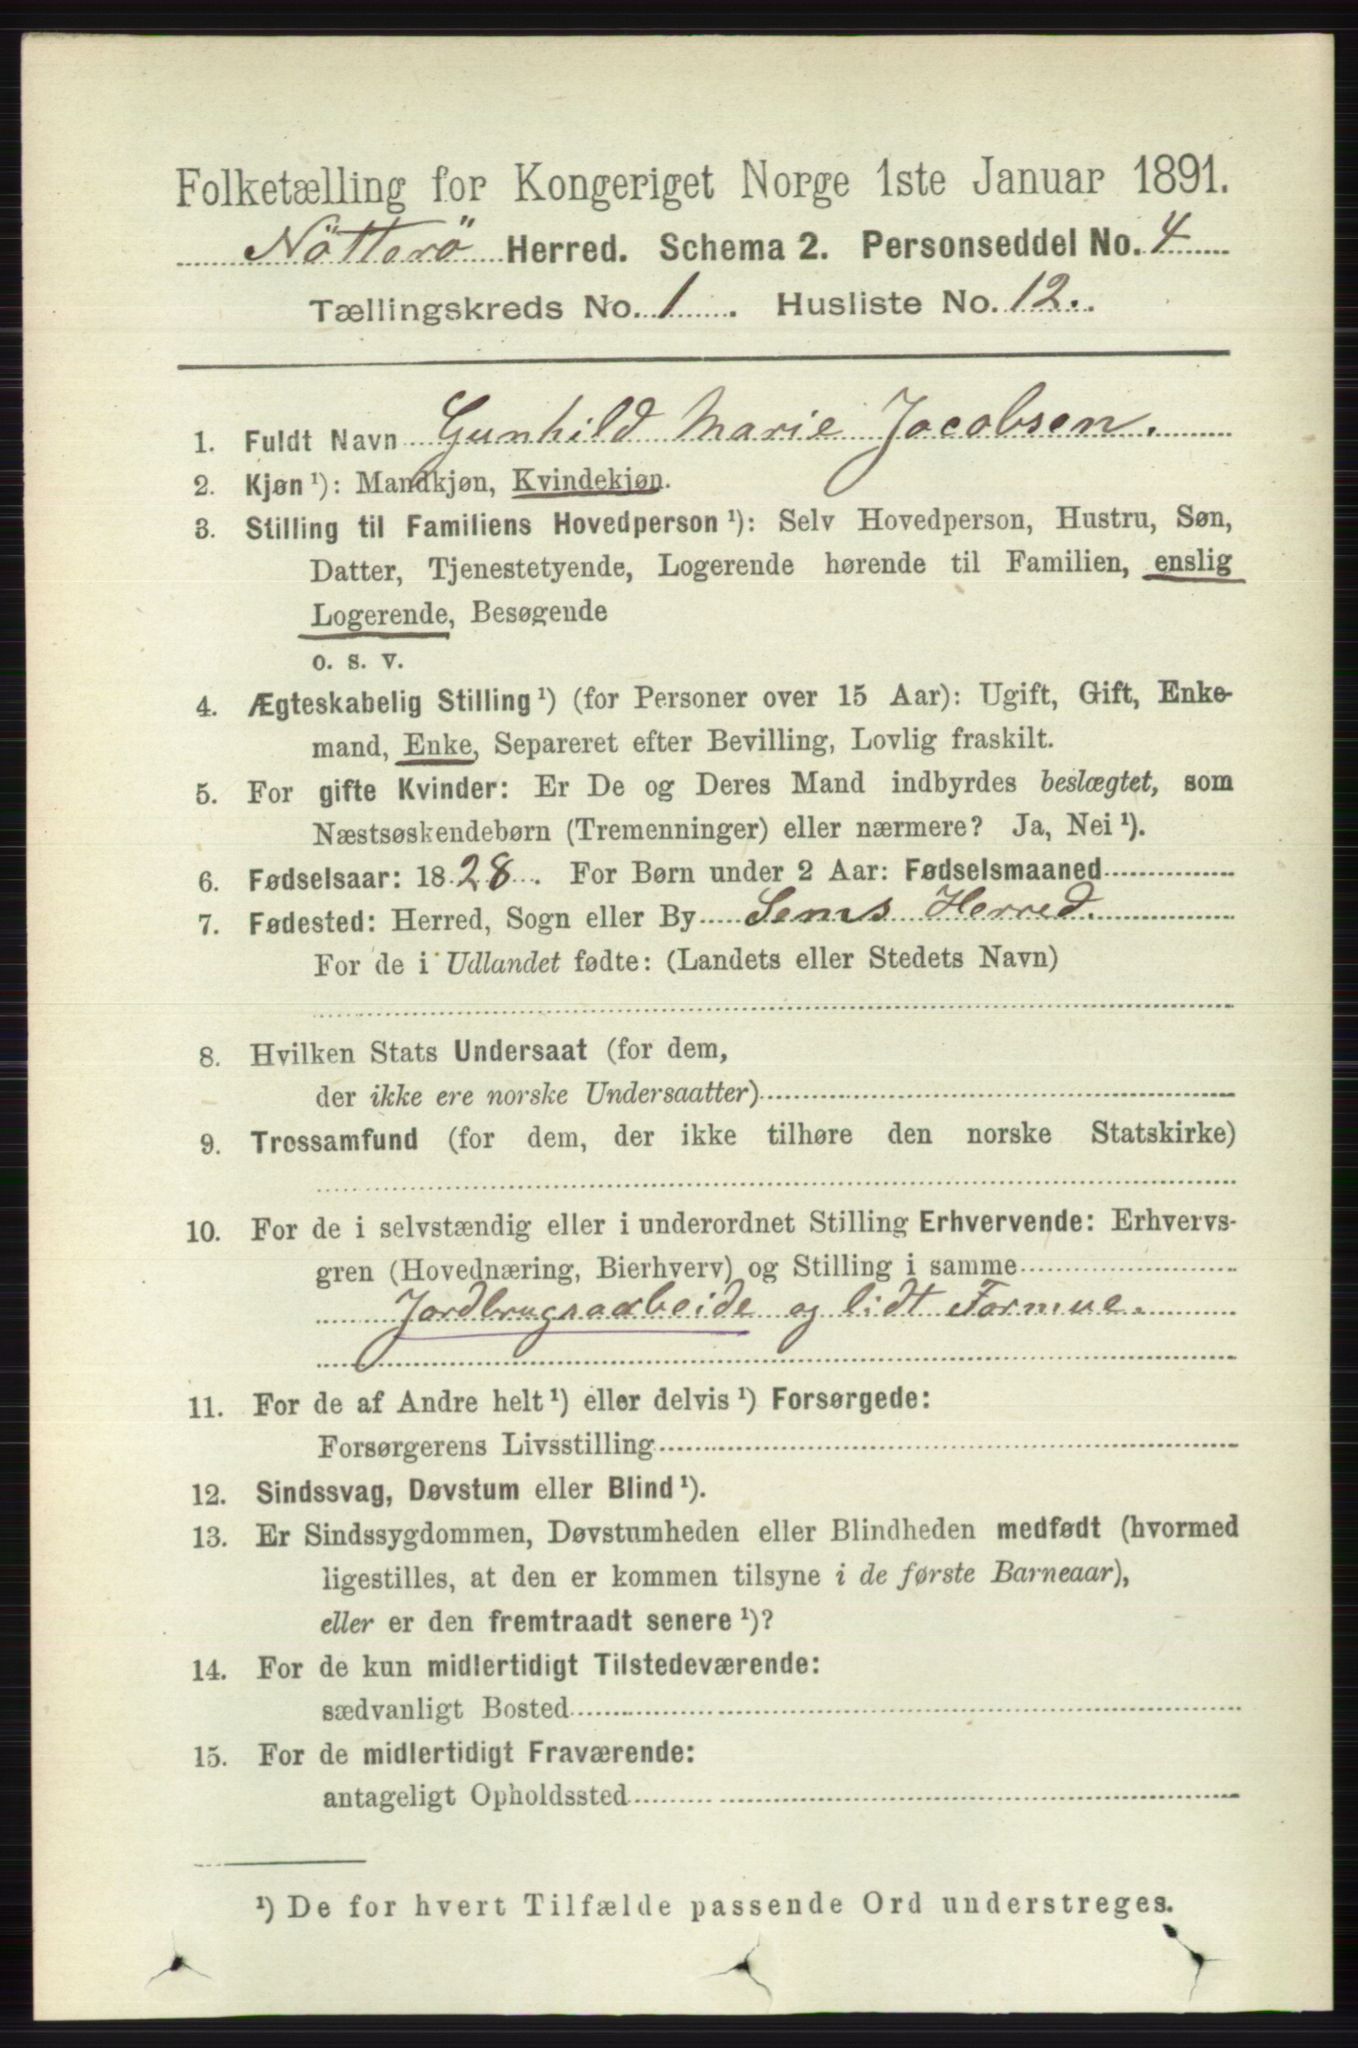 Folketælling for Kongeriget Norge 1ste Januar 1891.
Nötterö Herred. Schema 2. Personseddel No. 4
Tællingskreds No. 1. Husliste No. 12.
1. Fuldt Navn Gunhild Marie Jacobsen.
2. Kjøn ¹): Mandkjøn, Kvindekjøn.
3. Stilling til Familiens Hovedperson ¹): Selv Hovedperson, Hustru, Søn,
Datter, Tjenestetyende, Logerende hørende til Familien, enslig
Logerende, Besøgende
o. s. v.
4. Ægteskabelig Stilling ¹) (for Personer over 15 Aar): Ugift, Gift, Enke-
mand, Enke, Separeret efter Bevilling, Lovlig fraskilt.
5. For gifte Kvinder: Er De og Deres Mand indbyrdes beslægtet, som
Næstsøskendebørn (Tremenninger) eller nærmere? Ja, Nei ¹).
6. Fødselsaar: 1828. For Børn under 2 Aar: Fødselsmaaned
7. Fødested: Herred, Sogn eller By Sems Herred.
For de i Udlandet fødte: (Landets eller Stedets Navn)
8. Hvilken Stats Undersaat (for dem,
der ikke ere norske Undersaatter)
9. Trossamfund (for dem, der ikke tilhøre den norske Statskirke)
10. For de i selvstændig eller i underordnet Stilling Erhvervende: Erhvervs-
gren (Hovednæring, Bierhverv) og Stilling i samme
Jordbrugsarbeide og lidt Formue.
11. For de af Andre helt ¹) eller delvis ¹) Forsørgede:
Forsørgerens Livsstilling
12. Sindssvag, Døvstum eller Blind ¹).
13. Er Sindssygdommen, Døvstumheden eller Blindheden medfødt (hvormed
ligestilles, at den er kommen tilsyne i de første Barneaar),
eller er den fremtraadt senere ¹)?
14. For de kun midlertidigt Tilstedeværende:
sædvanligt Bosted
15. For de midlertidigt Fraværende:
antageligt Opholdssted
¹) De for hvert Tilfælde passende Ord understreges.